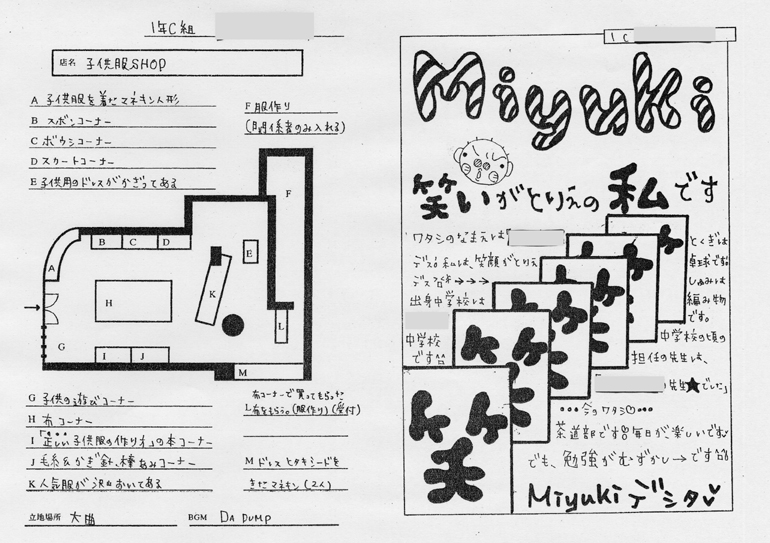 1年C組
店名 子供服SHOP
A 子供服を着たマネキン人形
B ズボンコーナー
C ボウシコーナー
D スカートコーナー
E 子供用のドレスがかざってある
F 服作り
(関係者のみ入れる)
F
B C D
E
A
K
H
L
G
I J
M
G 子供の遊びコーナー
H 布コーナー
I 「正しい子供服の作り方」の本コーナー
J 毛糸&かぎ針、棒あみコーナー
K 人気服が沢山おいてある
布コーナーで買ってもらった
L 布をもらう。(服作り)(受付)
M ドレスとタキシードを
きたマネキン(2人)
立地場所 大曲
BGM DA PUMP
1C
Miyuki
笑いがとりえの私です
ワタシのなまえは
デス。私は、笑顔がとりえ
デス
→→→→
出身中学校は
中学校
です
とくぎは
卓球です
しゅみは
編み物
です。
中学校の頃の
担任の先生は、
の先生★でした
今のワタシ♡
茶道部です 毎日が、楽しいです
でも、勉強がむずかしーです
笑
Miyukiデシタ♥